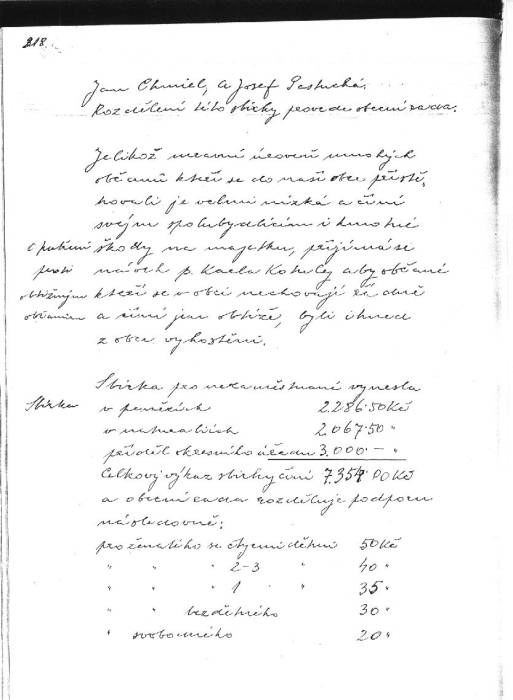 218.
Jan Chmiel, a Josef Pastuchá.
Rozdělení této sbírky provede obecní rada.
Jelikož mravní úroveň mnohých
občanů kteří se do naší obce přistě-
hovali je velmi nízká a činí
svým spolubydlícím i hmotné
Opatření škody na majetku, přijímá se
proti návrh p. Karla Kotuly aby občané
obtížným kteří se v obci nechovají řádně
občanům a činí jen obtíže, byli ihned
z obce vyhoštěni.
Sbírka pro nezaměstnané vynesla
Sbírka v penězích 2.286.50 Kč
v naturaliích 2.067.50 "
příděl okresního úřadu 3.000.— "
Celkový výkaz sbírky činí 7.354.00 Kč
a obecní rada rozděluje podporu
následovně:
pro ženatého se čtyřmi dětmi 50 Kč
" " " 2-3 " 40 "
" " " 1 " 35 "
" " bezdětného 30 "
" svobodného 20 "